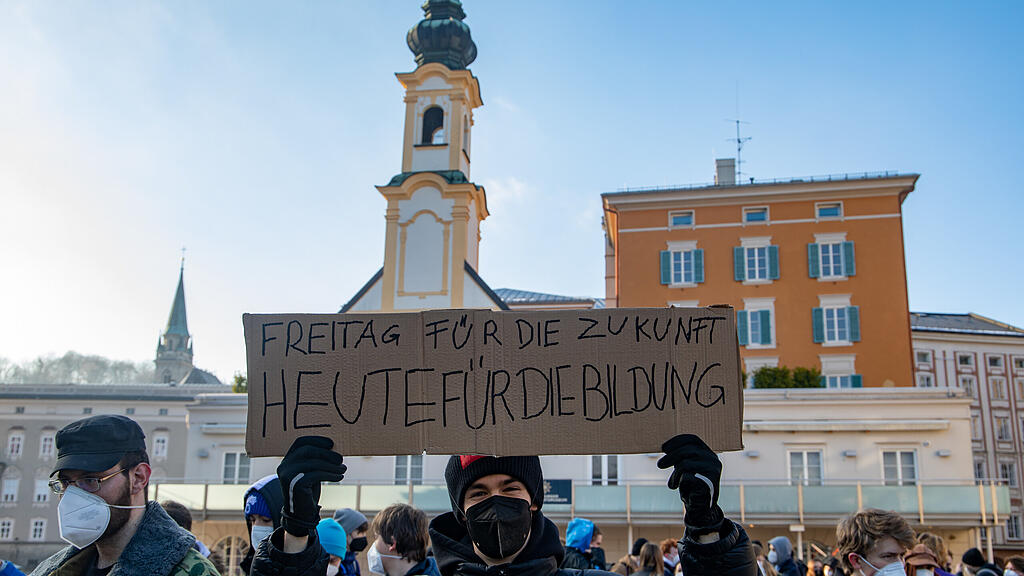 FREITAG FÜR DIE ZUKUNFT
HEUTE FÜR DIE BILDUNG